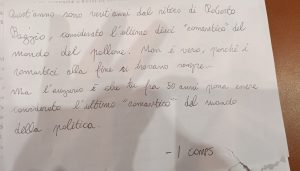 Quest'anno sono vent'anni dal ritiro di Roberto
Baggio, considerato l'ultimo dieci "romantico" del
mondo del pallone. Non è vero, perché i
romantici alla fine si trovano sempre...
Ma l'augurio è che tu fra 50 anni possa essere
considerato l'ultimo "romantico" del mondo
della politica.
- I COMPS